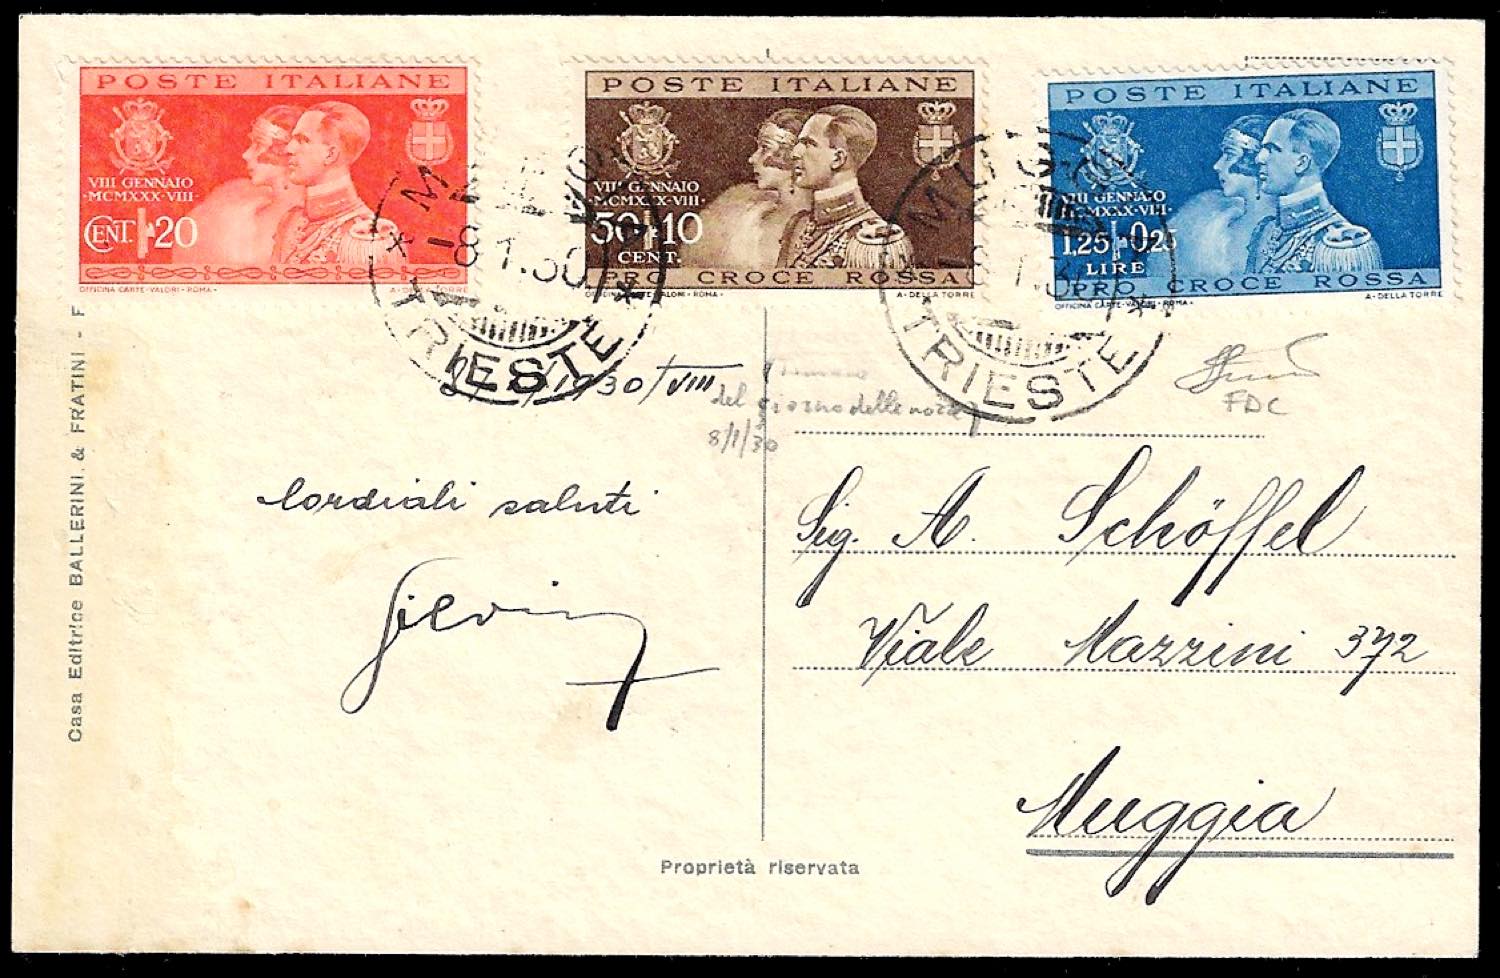 POSTE ITALIANE
VIII GENNAIO
MCMXXX·VIII·
CENT. 20
OFFICINA CARTE-VALORI-ROMA-
A-DELLA TORRE
POSTE ITALIANE
VIII GENNAIO
·MCMXXX·VIII·
50+10
CENT.
PRO CROCE ROSSA
OFFICINA CARTE-VALORI-ROMA-
A-DELLA TORRE
POSTE ITALIANE
VIII GENNAIO
MCMXXX·VIII·
1,25+0,25
LIRE
PRO CROCE ROSSA
OFFICINA CARTE-VALORI-ROMA-
A-DELLA TORRE
MUGGIA
-8.1.30
TRIESTE
MUGGIA
TRIESTE
1930/VIII
del giorno delle nozze)
8/1/30
FDC
Cordiali saluti
Sig. A. Schöffel
Viale Mazzini 372
Muggia
Casa Editrice BALLERINI & FRATINI - F
Proprietà riservata